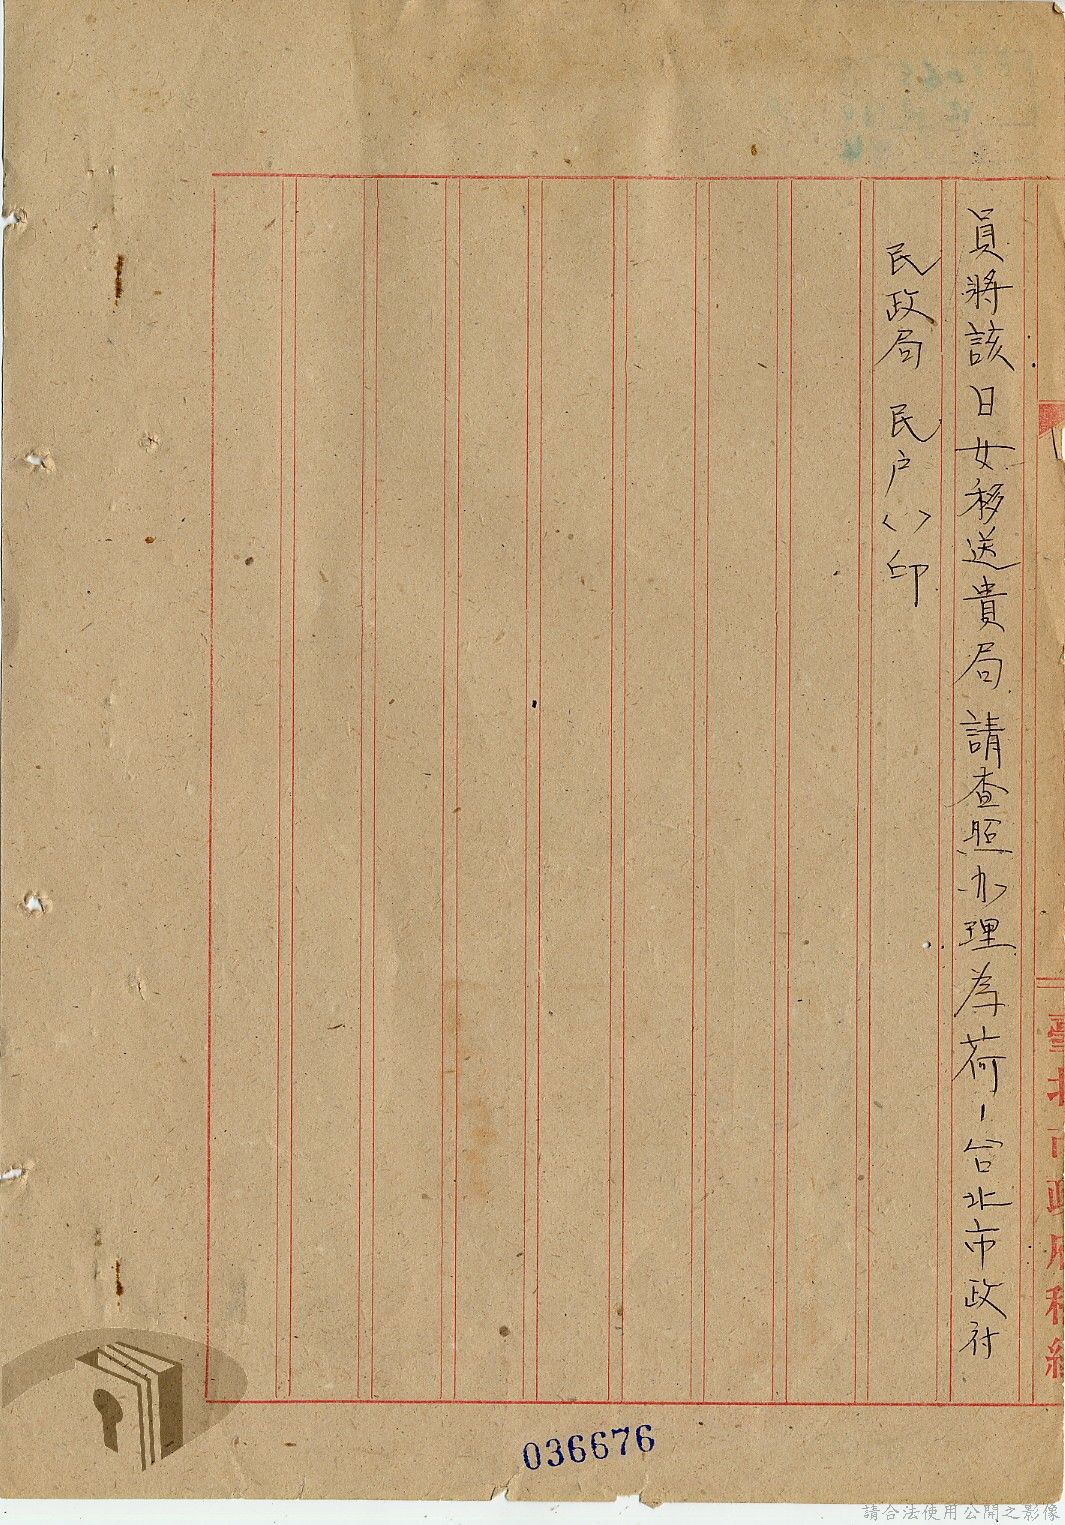 員將該日女移送貴局請查照办理為荷－台北市政府
民政局 民户〈〉印
臺北市政府稿紙
036676
請合法使用公開之影像